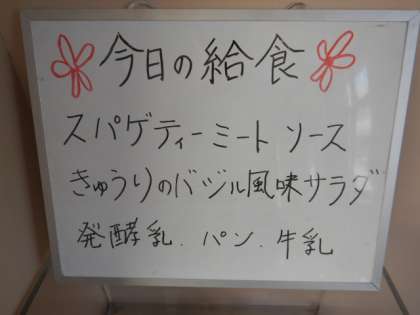 今日の給食
スパゲティーミートソース
きゅうりのバジル風味サラダ
発酵乳.パン.牛乳